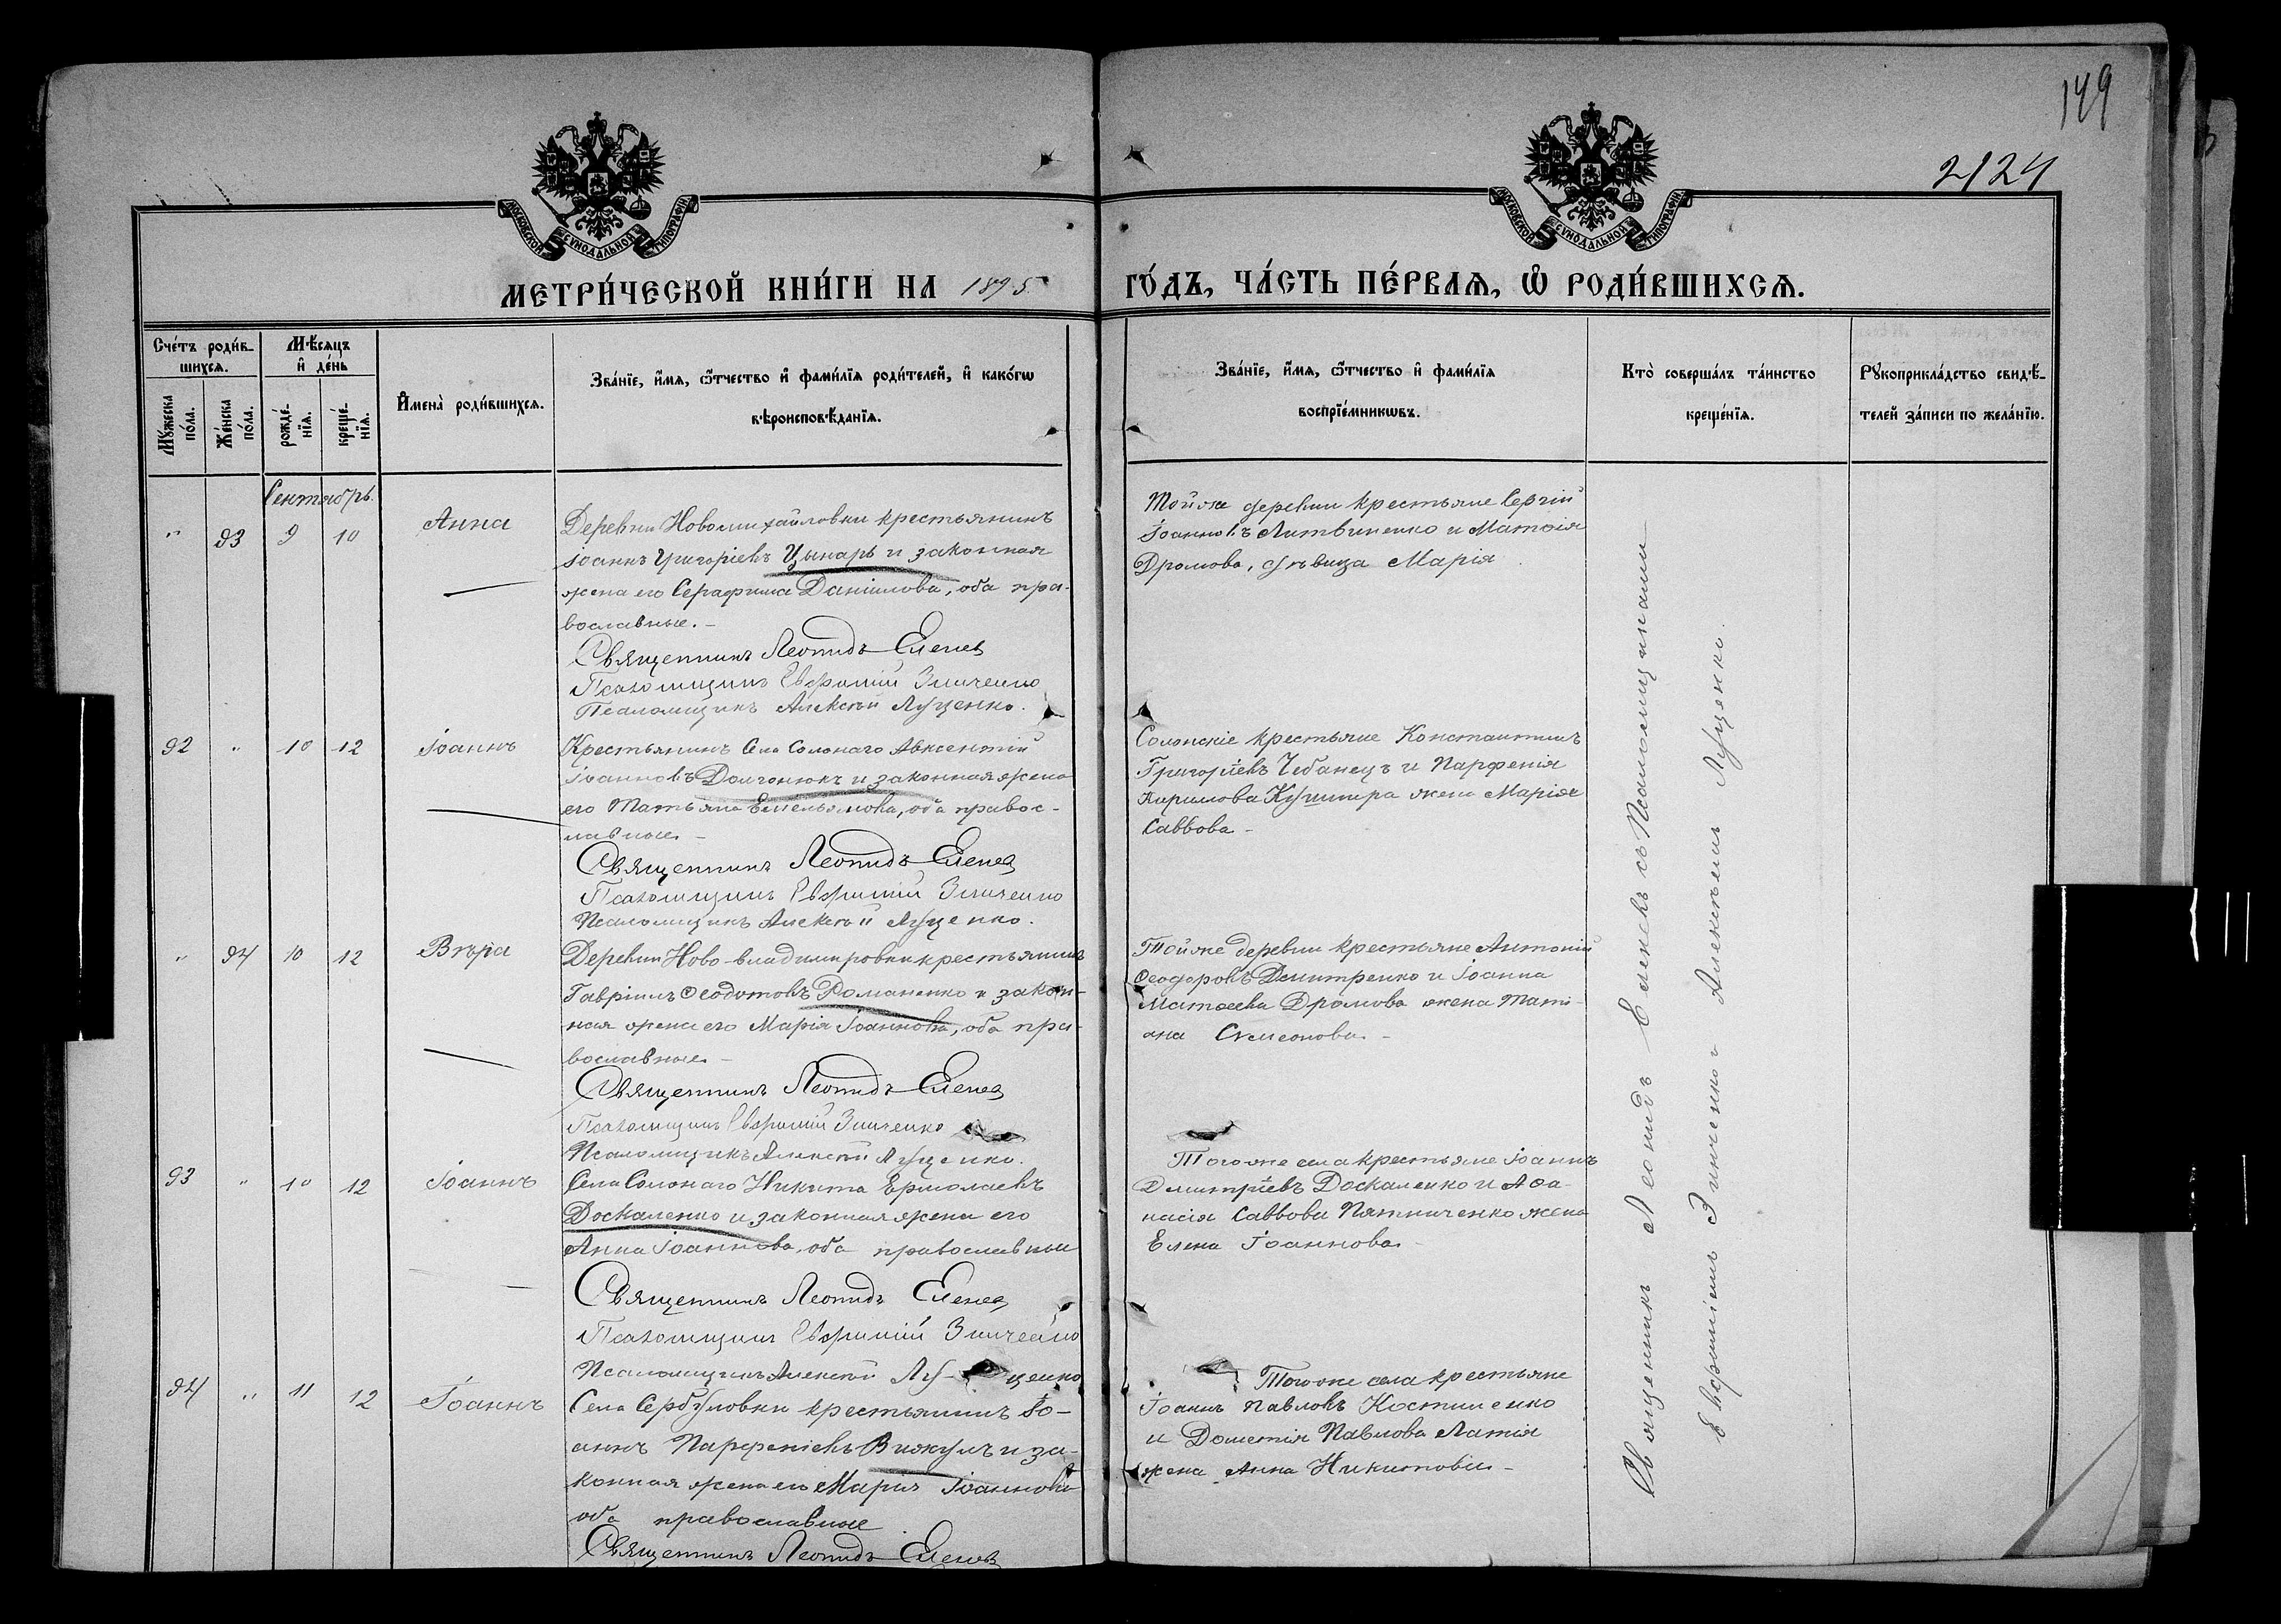 149
2124
МОСКОВСКОЙ СУНОДАЛЬНОЙ ТИПОГРАФІИ
МОСКОВСКОЙ СУНОДАЛЬНОЙ ТИПОГРАФІИ
МЕТРИ́ЧЕСКОЙ КНИ́ГИ НА 1895 ГО́ДЪ, ЧА́СТЬ ПЕ́РВАѦ, Ѽ РОДИ́ВШИХСѦ.
Сче́тъ роди́в-
шихсѧ.
Мꙋ́жеска по́ла.
Же́нска по́ла.
Мѣ́сѧцъ
и҆ де́нь
рожде́-
нїѧ.
креще́-
нїѧ.
И҆мена̀ роди́вшихсѧ.
Зва́нїе, и҆́мѧ, ѻ҆́тчество и҆ фами́лїѧ роди́телей, и҆ како́гѡ
вѣроисповѣ́данїѧ.
Зва́нїе, и҆́мѧ, ѻ҆́тчество и҆ фами́лїѧ
воспрїе́мникѡвъ.
Кто̀ соверша́лъ та́инство
креще́нїѧ.
Рꙋкоприкла́дство свидѣ́-
телей за́писи по жела́нїю.
Сентябрь.
" 93 9 10 Анна
Деревни Новомихайловки крестьянинъ
Іоаннъ Григоріевъ Цынарь и законная
жена его Серафима Даніилова, оба пра-
вославные. –
Священникъ Леонидъ Еленев
Псаломщикъ Евфимій Зинченко
Псаломщикъ Алексѣй Луценко.
Тойже деревни крестьяне Сергій
Іоанновъ Литвиненко и Матѳія
Дромова, дѣвица Марія
92 " 10 12 Іоаннъ
Крестьянинъ Села Солонаго Авксентій
Іоанновъ Долгонюкъ и законная жена
его Татьяна Емельянова, оба правос-
лавные –
Священникъ Леонидъ Еленев
Псаломщикъ Евфимій Зинченко
Псаломщикъ Алексѣй Луценко.
Солонскіе крестьяне Константинъ
Григоріевъ Чебанецъ и Парфенія
Кирилова Кушнира жена Марія
Саввова –
" 94 10 12 Вѣра
Деревни Ново-владимировки крестьянинъ
Гавріилъ Ѳеодотовъ Романенко и закон-
ная жена его Марія Іоаннова, оба пра-
вославные –
Священникъ Леонидъ Еленев
Псаломщикъ Евфимій Зинченко
Псаломщикъ Алексѣй Луценко.
Тойже деревни крестьяне Антоній
Ѳеодоровъ Дмитренко и Іоанна
Матѳеева Дромова жена Тати-
ана Сѵмеонова –
93 " 10 12 Іоаннъ
Села Солонаго Никита Ермолаевъ
Доскаленко и законная жена его
Анна Іоаннова, оба православные
Священникъ Леонидъ Еленев
Псаломщикъ Евфимій Зинченко
Псаломщикъ Алексѣй Лу- ценко
Тогоже села крестьяне Іоаннъ
Дмитріевъ Доскаленко и Аѳа-
насія Саввова Пятниченко жена
Елена Іоаннова –
94 " 11 12 Іоаннъ
Села Сербуловки крестьянинъ Іо-
аннъ Парфеніевъ Вижулъ и за-
конная жена его Марія Іоаннова
оба православные
Священникъ Леонидъ Еленев
Тогоже села крестьяне
Іоаннъ Павловъ Костиненко
и Дометія Павлова Латія
жена Анна Никитова –
Священникъ Леонидъ Еленевъ съ Псаломщиками
Евфиміемъ Зинченко и Алексѣемъ Луценко.